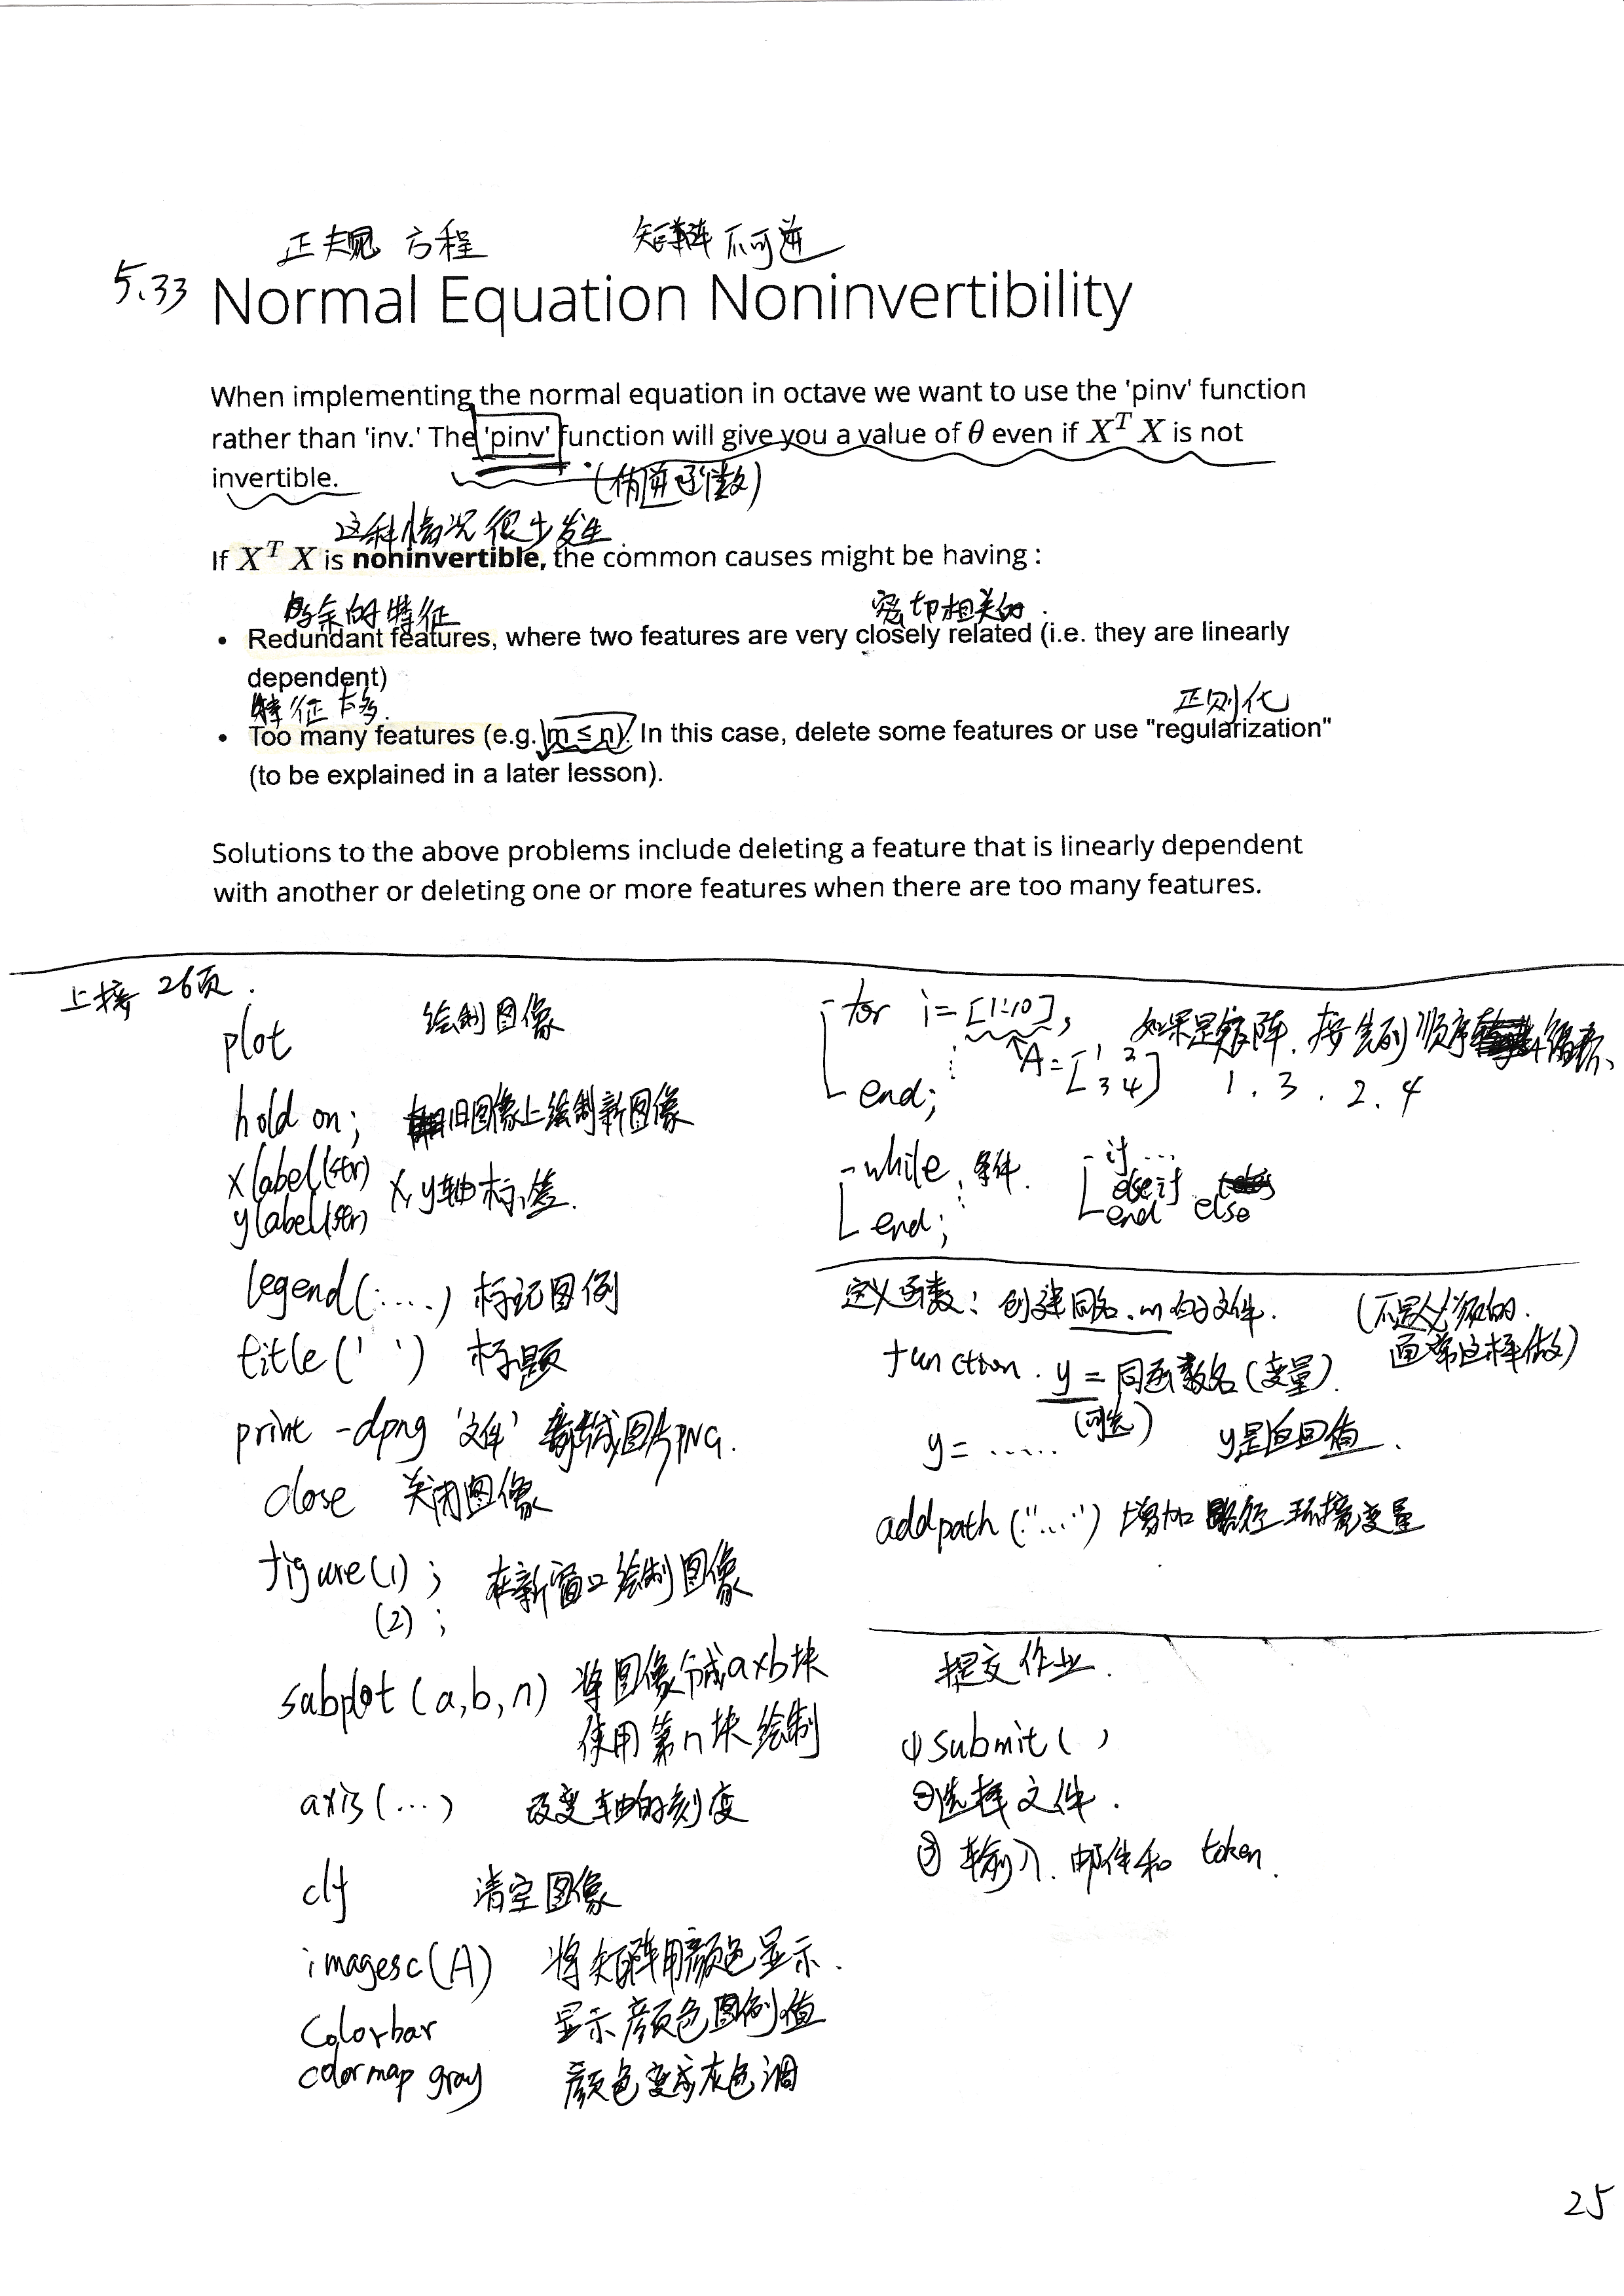 正规 方程 矩阵不可逆
5.33 Normal Equation Noninvertibility
When implementing the normal equation in octave we want to use the 'pinv' function
rather than 'inv.' The 'pinv' function will give you a value of θ even if X^T X is not
invertible.
(伪逆函数)
这种情况很少发生
If X^T X is noninvertible, the common causes might be having :
多余的特征 密切相关的.
• Redundant features, where two features are very closely related (i.e. they are linearly
dependent)
特征太多. 正则化
• Too many features (e.g. m ≤ n). In this case, delete some features or use "regularization"
(to be explained in a later lesson).
Solutions to the above problems include deleting a feature that is linearly dependent
with another or deleting one or more features when there are too many features.
上接 26页.
plot 绘制图像
hold on; 旧图像上绘制新图像
xlabel(str)
ylabel(str) x,y轴标签.
legend(.....) 标记图例
title(' ') 标题
print -dpng '文件' 图片PNG.
close 关闭图像
figure(1); 在新窗口绘制图像
(2);
subplot(a,b,n) 将图像分成a×b块
使用第n块绘制
axis(...) 改变轴的刻度
clf 清空图像
imagesc(A) 将矩阵用颜色显示.
Colorbar 显示颜色图例值
colormap gray 颜色变成灰色调
- for i=[1:10],
A=[1 2
3 4]
如果是矩阵.按先列顺序
1.3.2.4
end;
- while 条件.
end;
- if ...
elseif
else
end
定义函数: 创建同名.m的文件. (不是必须的.
通常这样做)
function. y = 同函数名(变量).
(可选)
y= ..... y是返回值.
addpath("...") 增加路径环境变量
提交作业.
① submit( )
②选择文件.
③ 输入.邮件和 token.
25